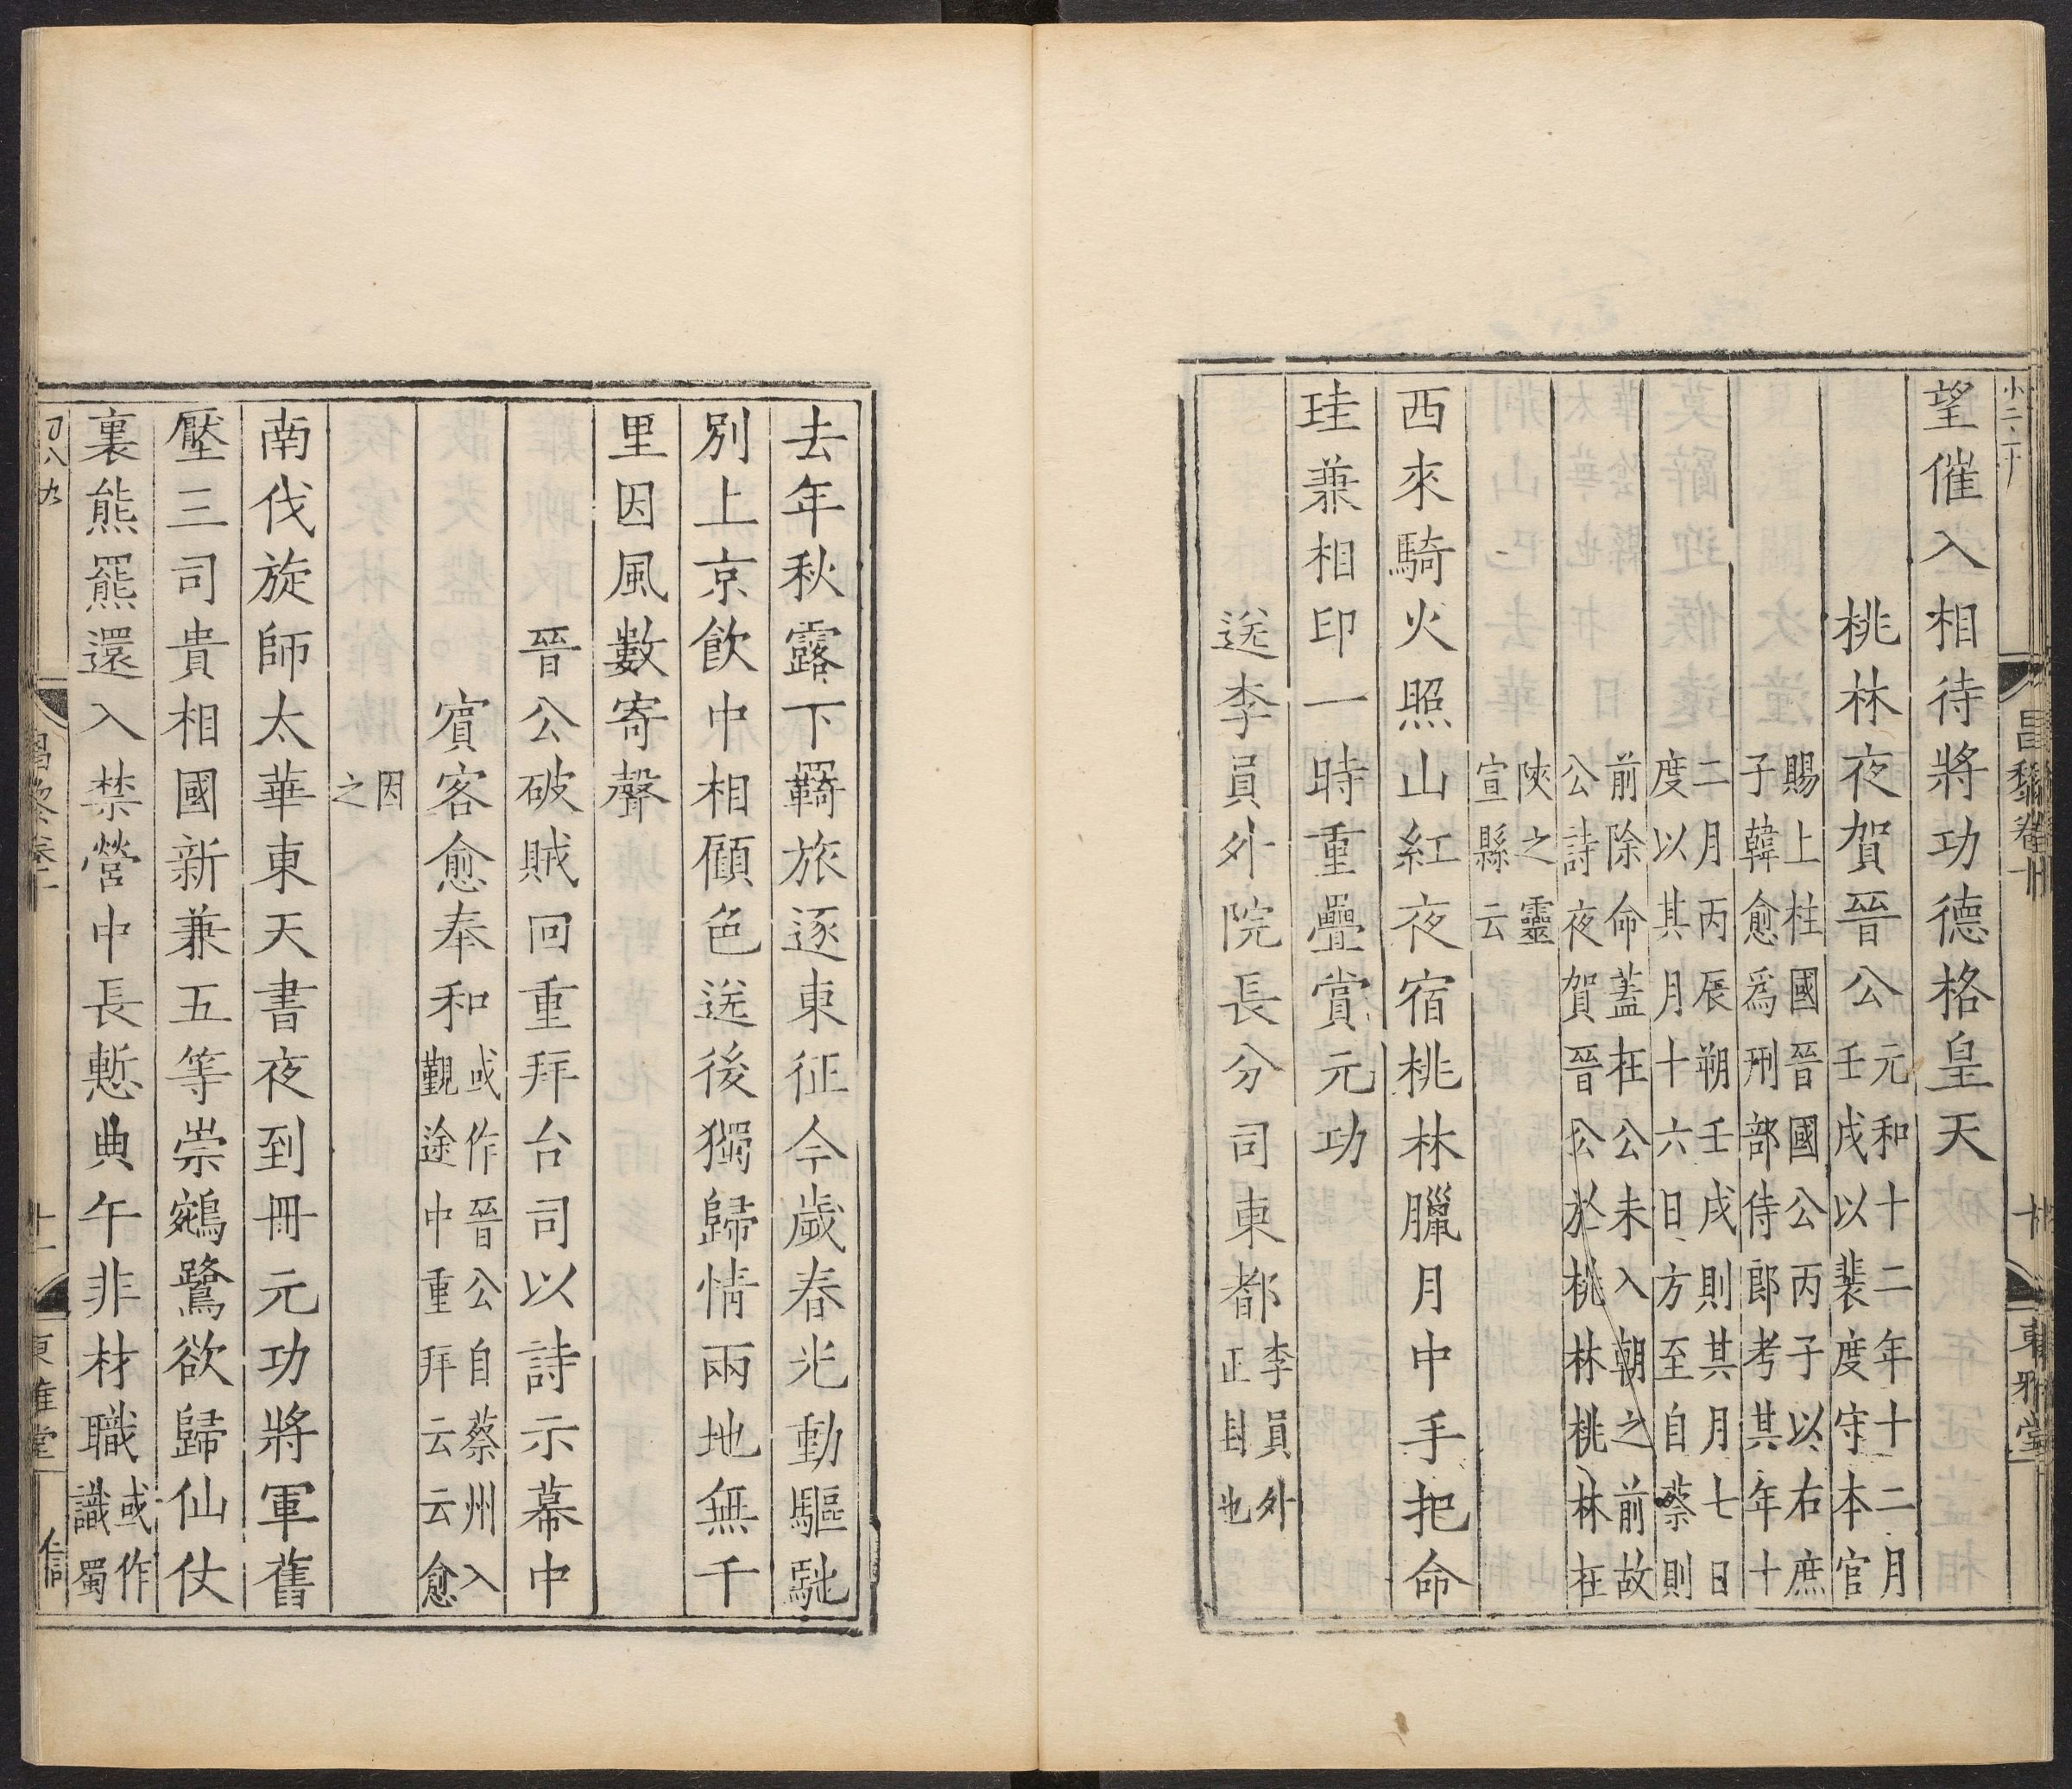 望催入相待將功德格皇天
桃林夜賀晉公元和十二年十二月
壬戌以裴度守本官
賜上柱國晉國公丙子以右庶
子韓愈爲刑部侍郎考其年十
二月丙辰朔壬戌則其月七日
度以其月十六日方至自蔡則
前除命蓋在公未入朝之前故
公詩夜賀晉公於桃林桃林在
陝之靈
宣縣云
西來騎火照山紅夜宿桃林臘月中手把命
珪兼相印一時重疊賞元功
送李員外院長分司東都李員外
正封也
昌黎卷十
十
東雅堂
去年秋露下羈旅逐東征今歲春光動驅馳
別上京飲中相顧色送後獨歸情兩地無千
里因風數寄聲
晉公破賊回重拜台司以詩示幕中
賓客愈奉和或作晉公自蔡州入
覲途中重拜云云愈
因
之
南伐旋師太華東天書夜到冊元功將軍舊
壓三司貴相國新兼五等崇鵷鷺欲歸仙仗
裏熊羆還入禁營中長慙典午非材職或作
識蜀
昌黎卷十
十一
東雅堂
信